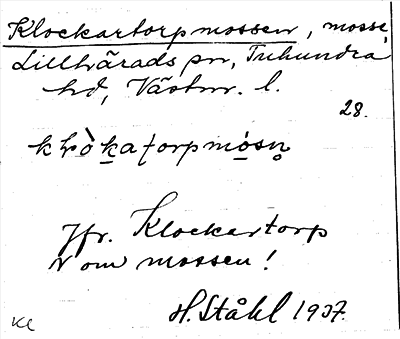 Klockartorpmossen, mosse,
Lillhärads sn, Tuhundra
hd, Västm. l.
28.
kɫòkatorpmòsn̥
Jfr. Klockartorp
N om mossen!
H. Ståhl 1937.
Kl